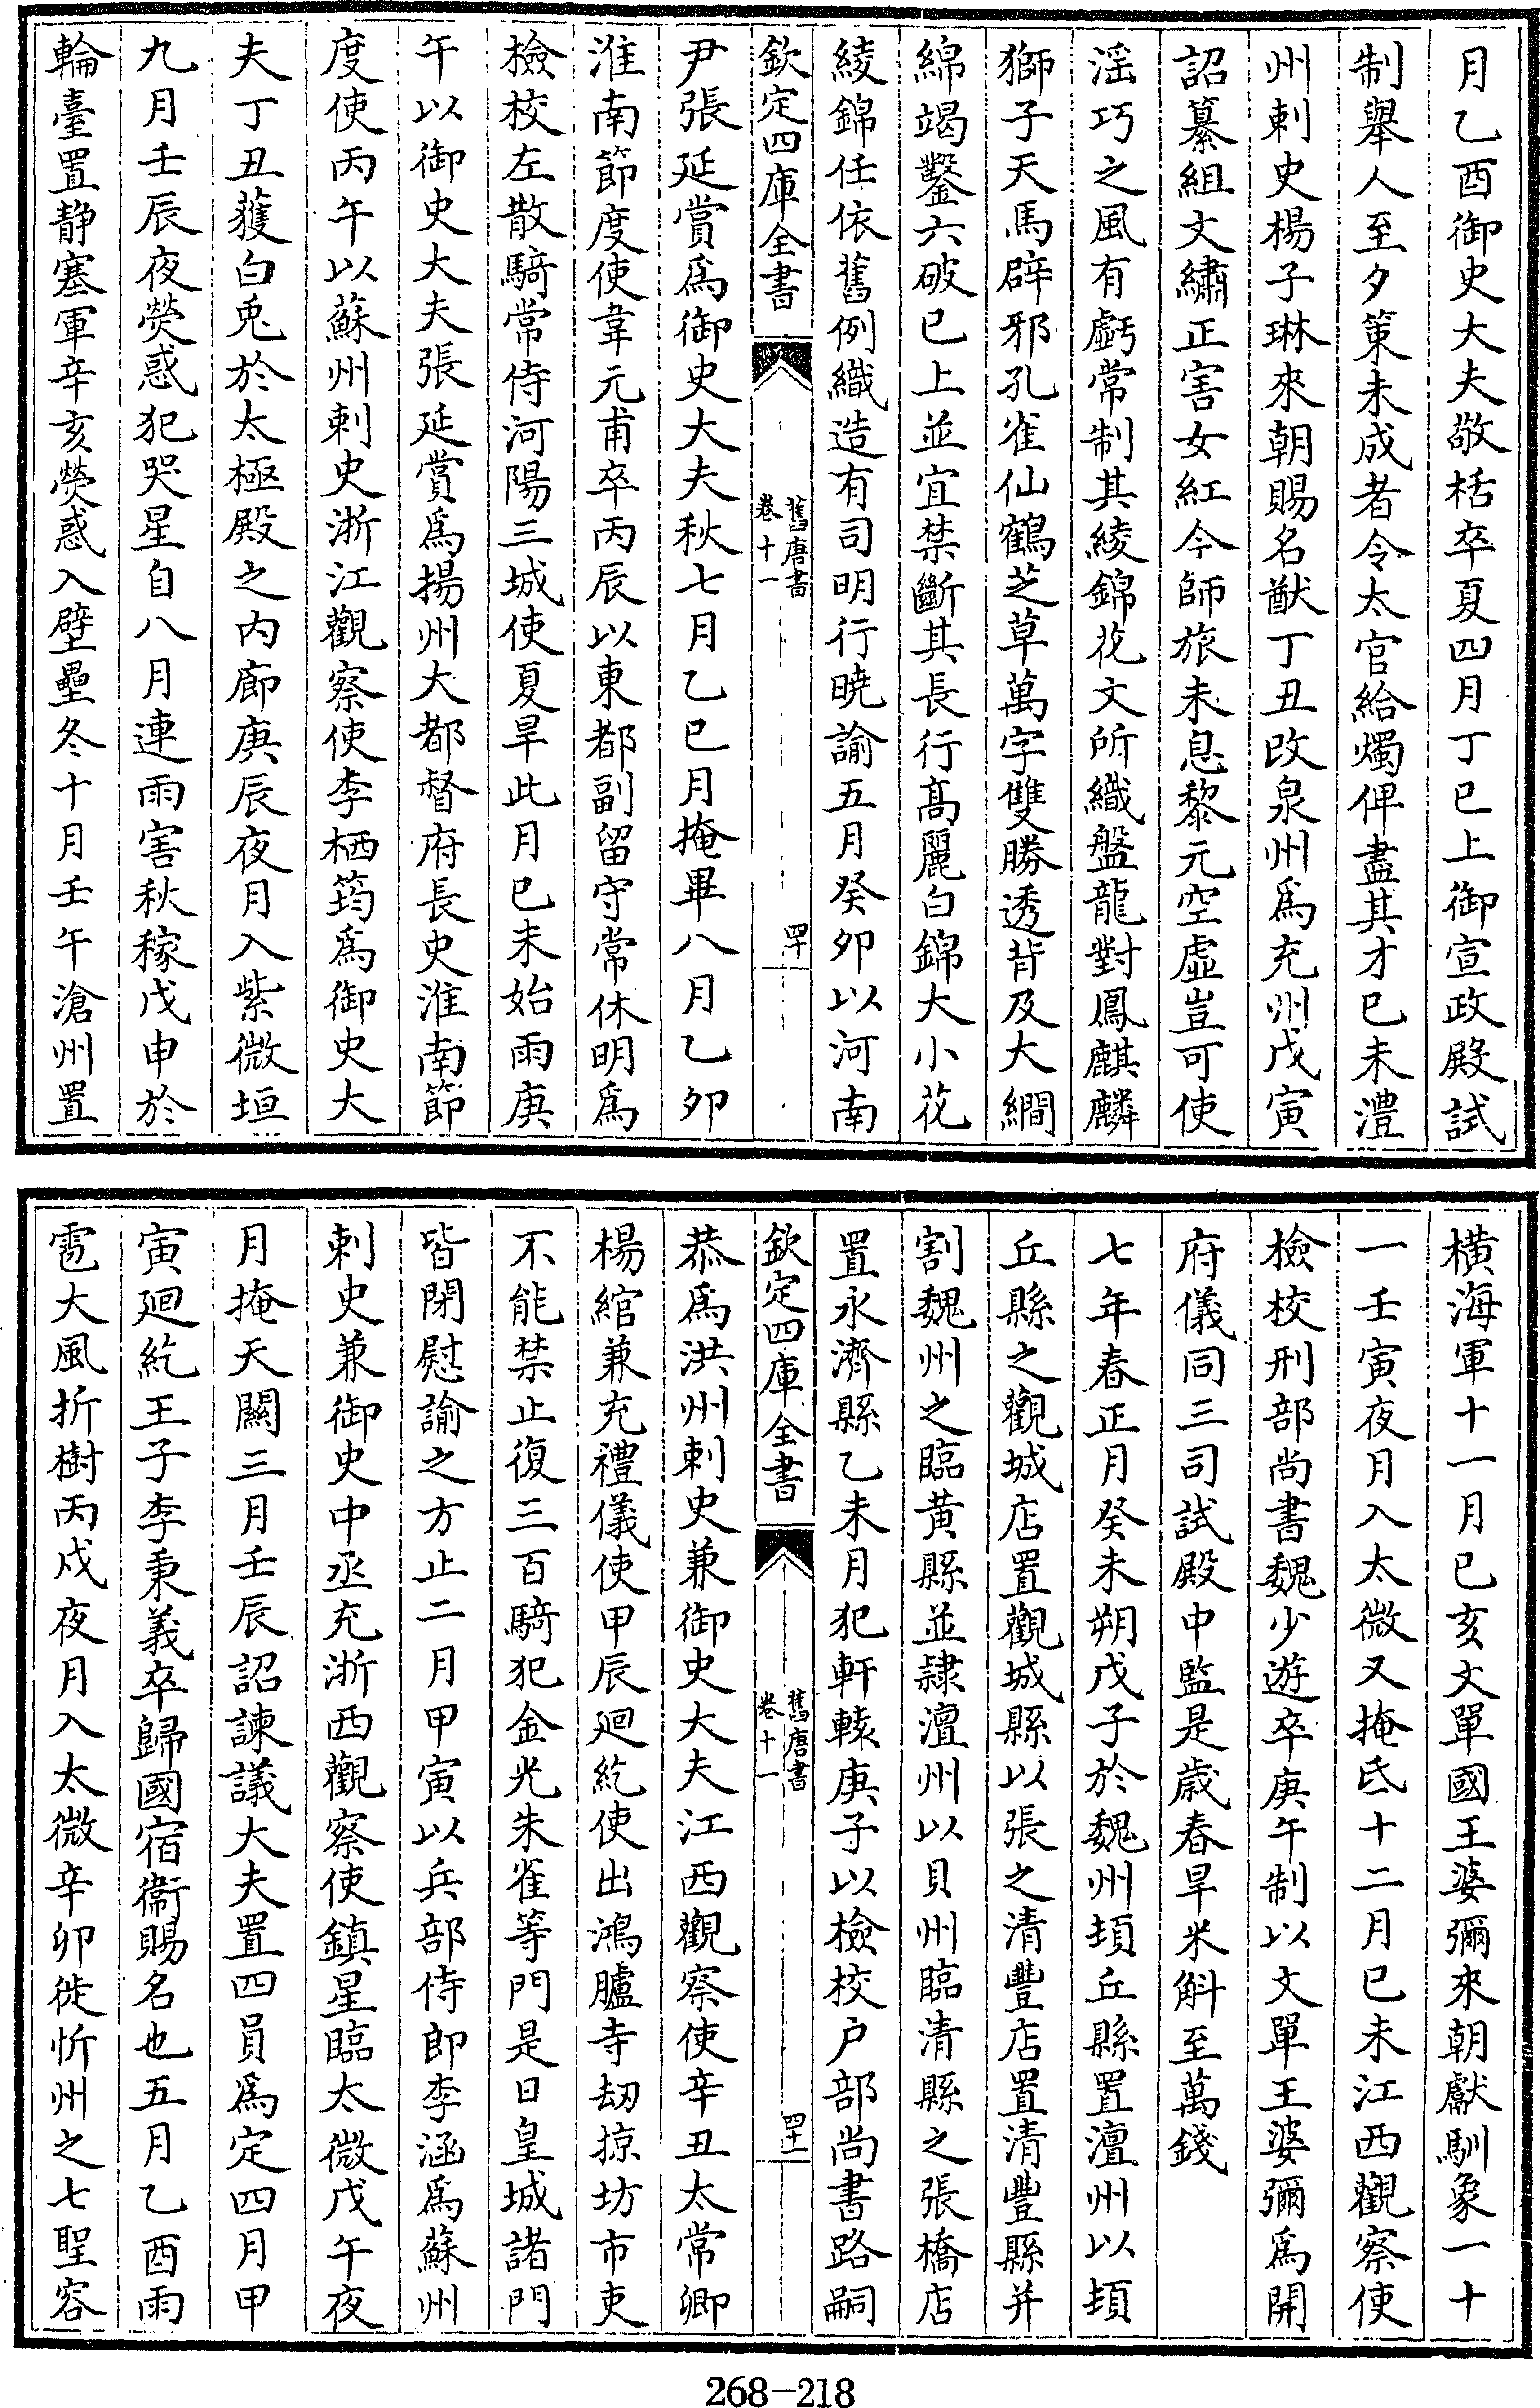 月乙酉御史大夫敬括卒夏四月丁巳上御宣政殿試
制舉人至夕策未成者令太官給燭俾盡其才己未澧
州刺史楊子琳來朝賜名猷丁丑改泉州爲充州戊寅
詔纂組文繡正害女紅今師旅未息黎元空虛豈可使
滛巧之風有虧常制其綾錦花文所織盤龍對鳳麒麟
獅子天馬辟邪孔雀仙鶴芝草萬字雙勝透背及大繝
綿竭鑿六破已上並宜禁斷其長行髙麗白錦大小花
綾錦任依舊例織造有司明行曉諭五月癸夘以河南
欽定四庫全書 舊唐書 卷十一 四十
尹張延賞爲御史大夫秋七月乙巳月掩畢八月乙夘
淮南節度使韋元甫卒丙辰以東都副留守常休明爲
檢校左散騎常侍河陽三城使夏旱此月己未始雨庚
午以御史大夫張延賞爲揚州大都督府長史淮南節
度使丙午以蘇州刺史浙江觀察使李栖筠爲御史大
夫丁丑獲白兎於太極殿之内廊庚辰夜月入紫微垣
九月壬辰夜熒惑犯哭星自八月連雨害秋稼戊申於
輪臺置静塞軍辛亥熒惑入壁壘冬十月壬午滄州置
橫海軍十一月己亥文單國王婆彌來朝獻馴象一十
一壬寅夜月入太微又掩氐十二月己未江西觀察使
檢校刑部尚書魏少遊卒庚午制以文單王婆彌爲開
府儀同三司試殿中監是歲春旱米斛至萬錢
七年春正月癸未朔戊子於魏州頓丘縣置澶州以頓
丘縣之觀城店置觀城縣以張之清豐店置清豐縣并
割魏州之臨黄縣並隷澶州以貝州臨清縣之張橋店
置永濟縣乙未月犯軒轅庚子以檢校户部尚書路嗣
欽定四庫全書 舊唐書 卷十一 四十一
恭爲洪州刺史兼御史大夫江西觀察使辛丑太常卿
楊綰兼充禮儀使甲辰廻紇使出鴻臚寺刼掠坊市吏
不能禁止復三百騎犯金光朱雀等門是日皇城諸門
皆閉慰諭之方止二月甲寅以兵部侍郎李涵爲蘇州
刺史兼御史中丞充浙西觀察使鎮星臨太微戊午夜
月掩天關三月壬辰詔諫議大夫置四員爲定四月甲
寅廻紇王子李秉義卒歸國宿衞賜名也五月乙酉雨
雹大風折樹丙戍夜月入太微辛卯徙忻州之七聖容
268-218